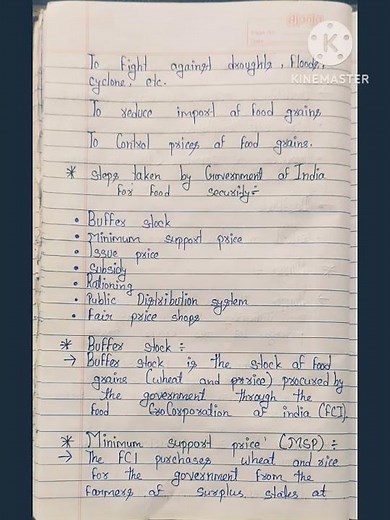 KINEMASTER
To Fight against droughts, floods,
cyclone, etc.
To reduce import of food grains
To Control prices of food grains.
* Steps taken by Government of India
for food security :-
• Buffer stock
• Minimum support price
• Issue price
• Subsidy
• Rationing
• Public Distribution system
• Fair price shops
* Buffer stock :-
→ Buffer stock is the stock of food
grains (wheat and price) procured by
the government through the
food CroCorporation of india (FCI).
* Minimum support price (MSP) :-
→ The FCI purchases wheat and rice
for the government from the
farmers of surplus states at